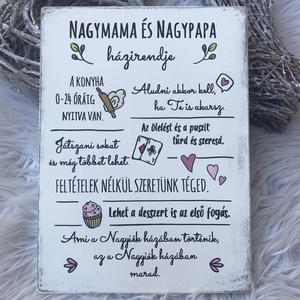 NAGYMAMA ÉS NAGYPAPA
házirendje
A KONYHA
0-24 ÓRÁIG
NYITVA VAN.
Aludni akkor kell,
ha Te is akarsz.
Az ölelést és a puszit
tűrd és szeresd.
Játszani sokat
és még többet lehet.
FELTÉTELEK NÉLKÜL SZERETÜNK TÉGED.
Lehet a desszert is az első fogás.
Ami a Nagyiék házában történik,
az a Nagyiék házában
marad.